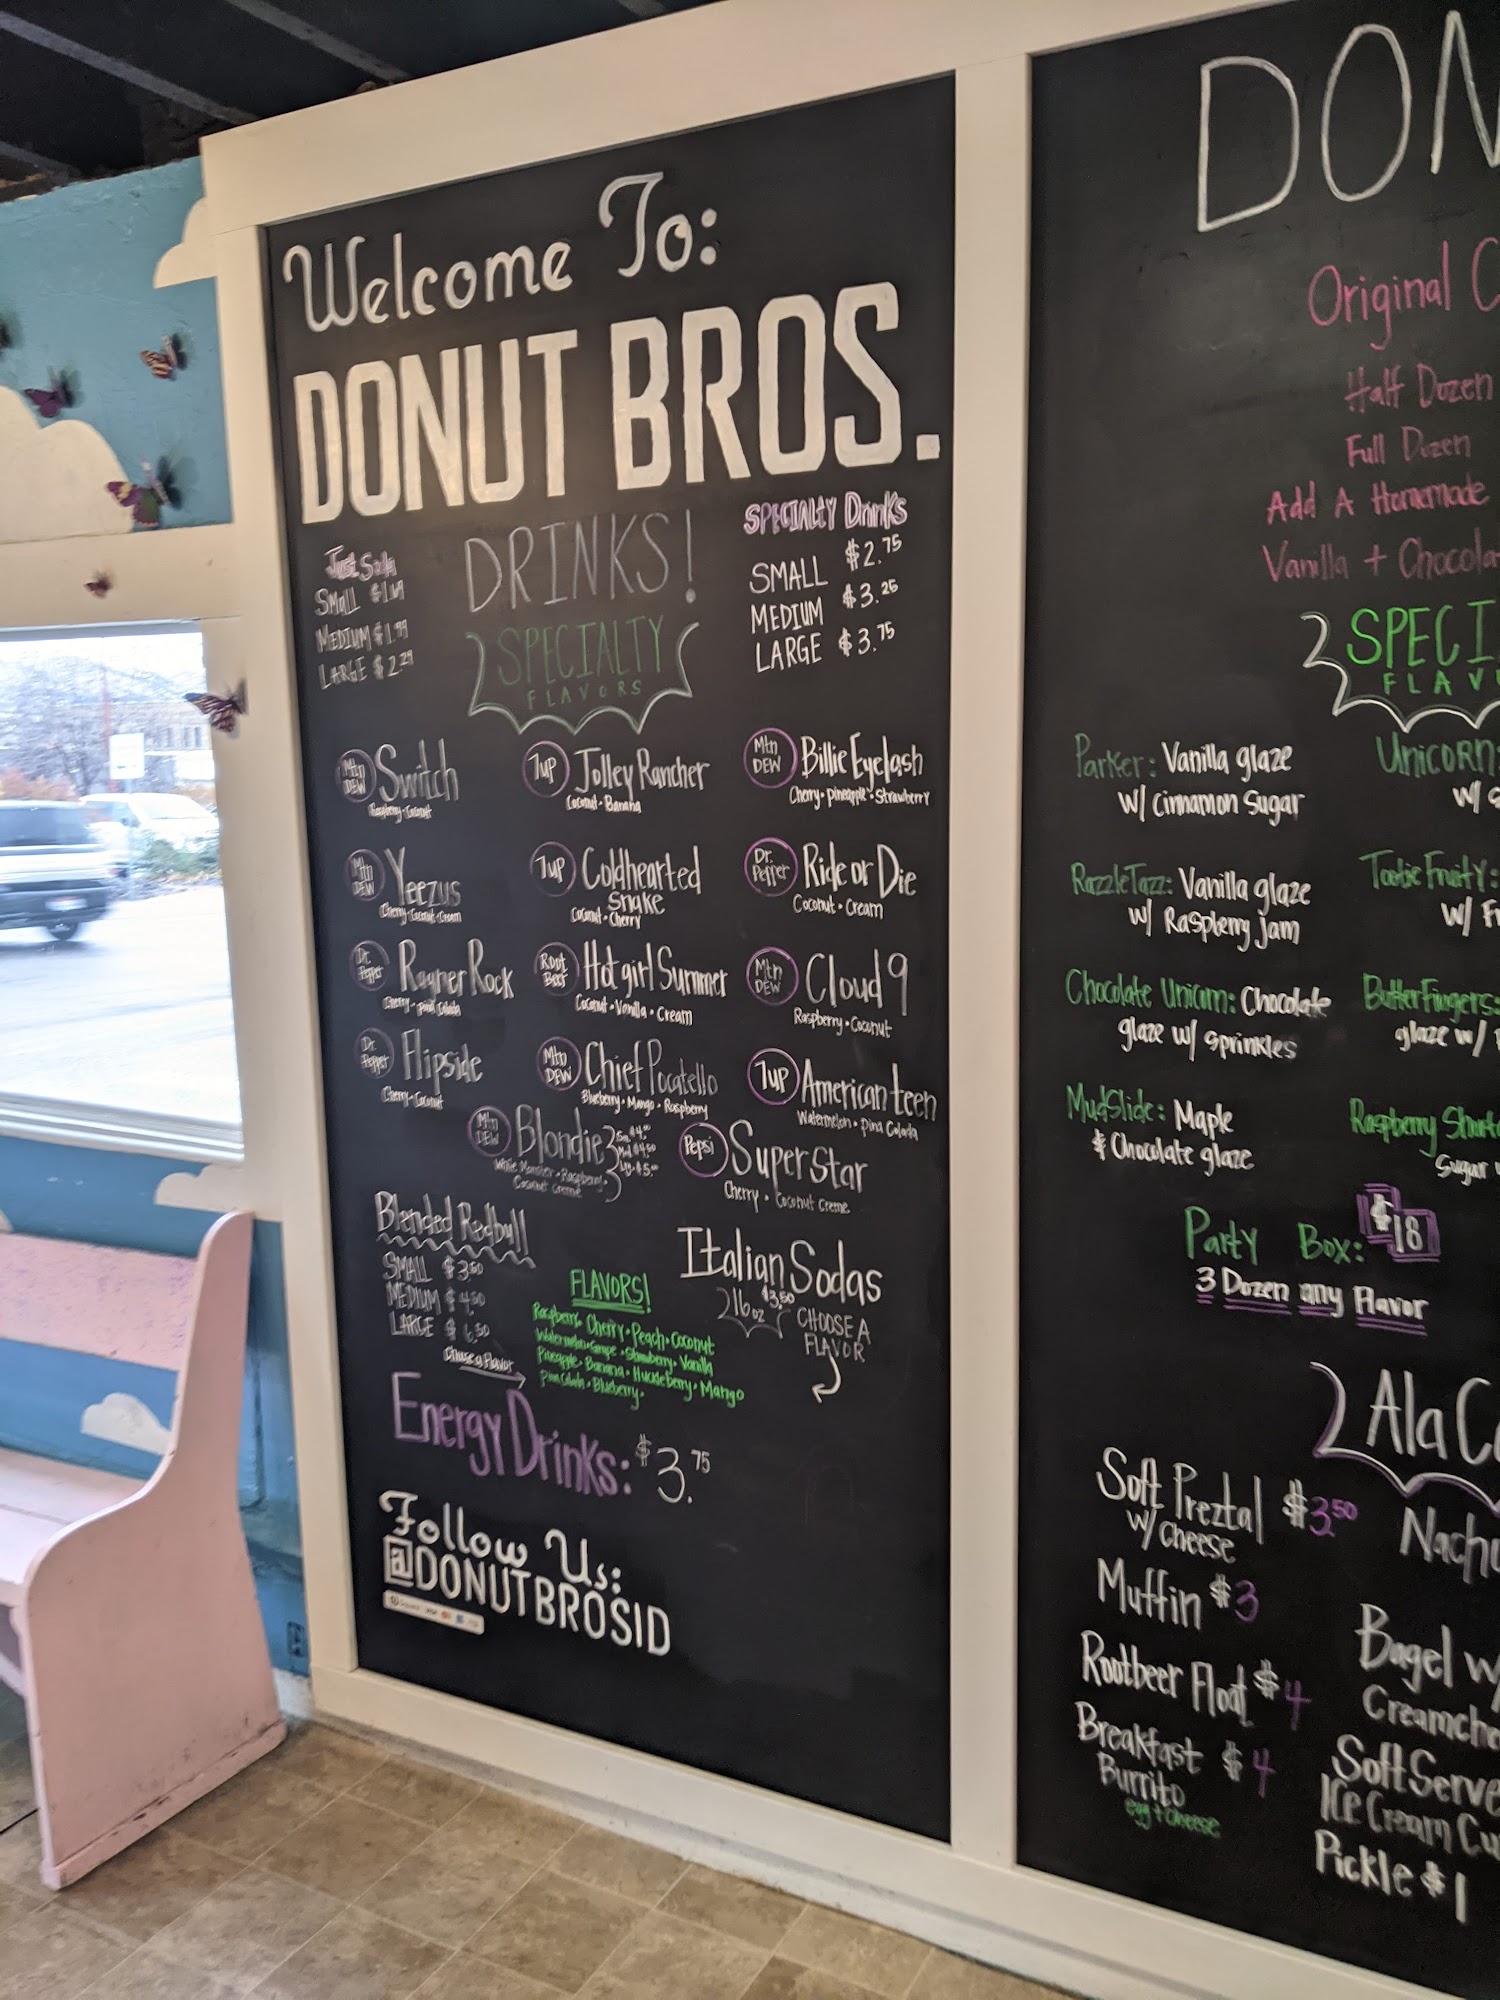 Welcome To:
DONUT BROS.
DRINKS!
Just Soda
Small $1.69
MEDIUM $1.99
LARGE $2.29
SPECIALTY Drinks
SMALL $2.75
MEDIUM $3.25
LARGE $3.75
SPECIALTY
FLAVORS
Mtn DEW Switch
Raspberry • Coconut
7up Jolley Rancher
Coconut • Banana
Mtn DEW Billie Eyelash
Cherry • pineapple • Strawberry
Mtn DEW Yeezus
Cherry • Coconut • Cream
7up Coldhearted
Snake
Coconut • Cherry
Dr. Pepper Ride or Die
Coconut • Cream
Dr. Pepper Ragner Rock
Cherry • pina Colada
Root Beer Hot girl Summer
Coconut • Vanilla • Cream
Mtn DEW Cloud 9
Raspberry • Coconut
Dr. Pepper Flipside
Cherry • Coconut
Mtn DEW Chief Pocatello
Blueberry • Mango • Raspberry
7up American teen
Watermelon • pina Colada
Mtn DEW Blondie
Sm $4.00
Med $4.50
Lg $5.00
White Monster • Raspberry •
Coconut Creme
Pepsi Super Star
Cherry • Coconut Creme
Blended Redbull
SMALL $3.50
MEDIUM $4.50
LARGE $6.50
Chose a Flavor
FLAVORS!
Raspberry • Cherry • Peach • Coconut
Watermelon • Grape • Strawberry • Vanilla
Pineapple • Banana • Huckleberry • Mango
Pina Colada • Blueberry •
Italian Sodas
$3.50
16 oz
CHOOSE A
FLAVOR
Energy Drinks: $3.75
Follow Us:
@DONUTBROSID
DON
Original C
Half Dozen
Full Dozen
Add A Homemade
Vanilla + Chocola
SPECI
FLAV
Parker: Vanilla glaze
w/ Cinnamon Sugar
Unicorn:
w/ S
RazzleTazz: Vanilla glaze
w/ Raspberry Jam
Tootie Fruity:
w/ Fr
Chocolate Unicorn: Chocolate
glaze w/ sprinkles
ButterFingers:
glaze w/
MudSlide: Maple
& Chocolate glaze
Raspberry Short
Sugar
Party Box: $18
3 Dozen any Flavor
Ala C
Soft Preztal $3.50
w/ cheese
Nach
Muffin $3
Bagel w/
Creamche
Rootbeer Float $4
Breakfast $4
Burrito
egg + cheese
Soft Serve
ICe Cream Cu
Pickle $1